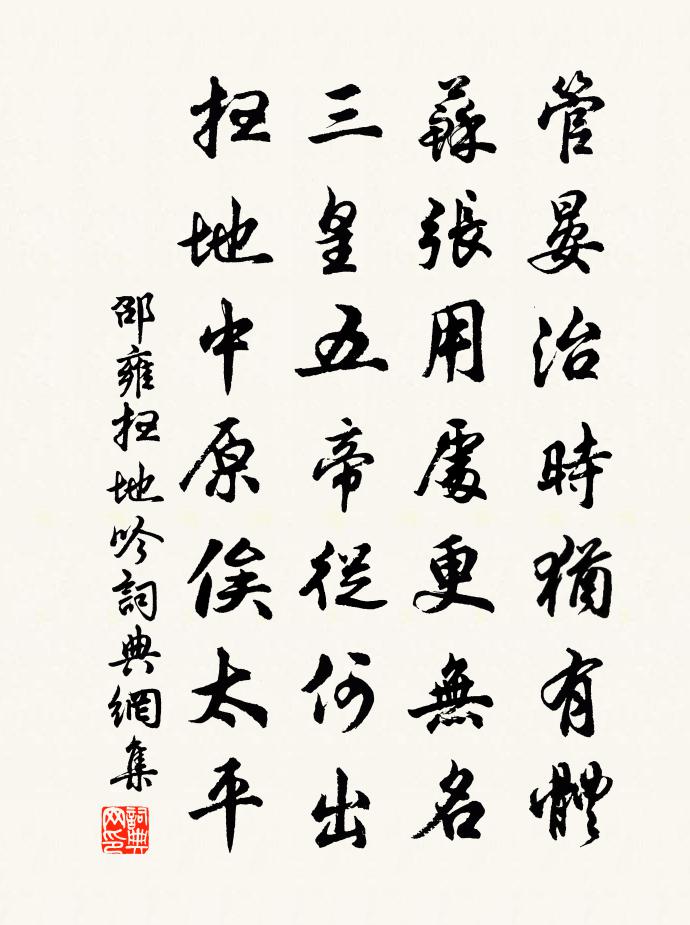 管晏治時猶有體
蘇張用處更無名
三皇五帝從何出
扫地中原俟太平
邵雍扫地吟詞典網集
詞典网印